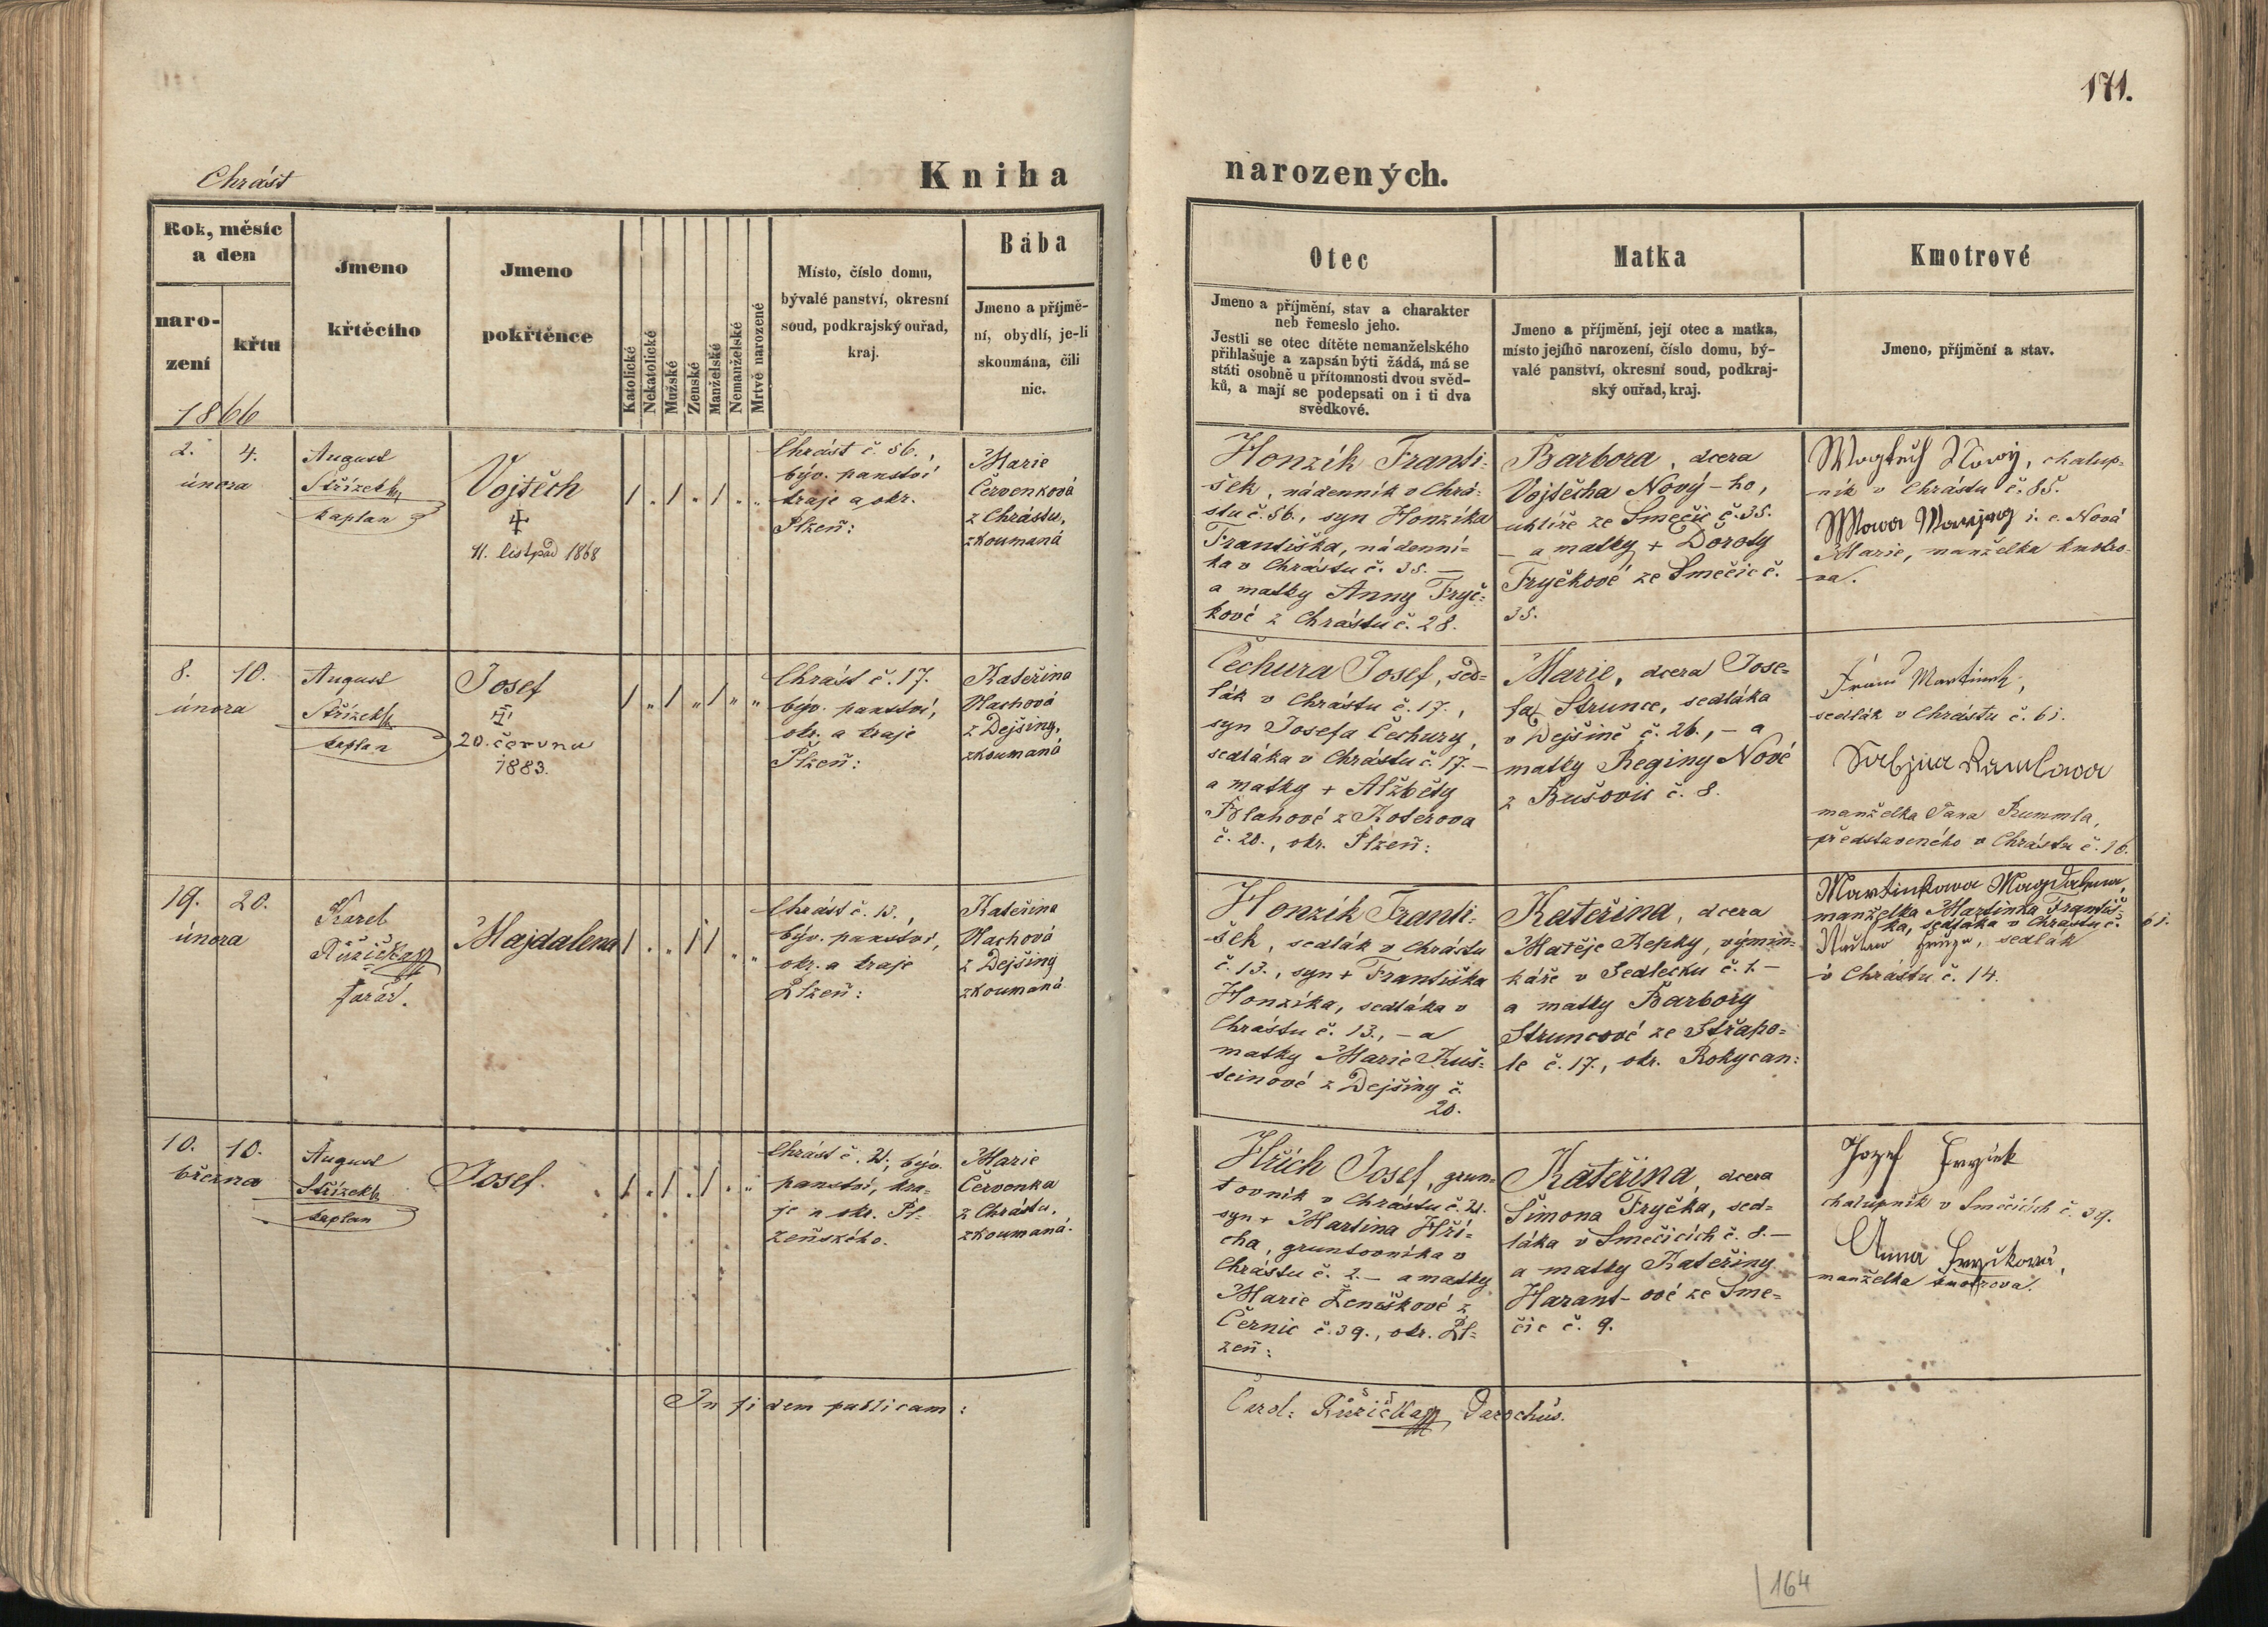 171.
Chrást
Kniha narozených.
Rok, měsíc
a den
naro-
zení
křtu
1866
Jmeno
křtěcího
Jmeno
pokřtěnce
Katolické
Nekatolické
Mužské
Ženské
Manželské
Nemanželské
Mrtvě narozené
Místo, číslo domu,
bývalé panství, okresní
soud, podkrajský ouřad,
kraj.
Bába
Jmeno a příjmě-
ní, obydlí, je-li
skoumána, čili
nic.
Otec
Jmeno a příjmění, stav a charakter
neb řemeslo jeho.
Jestli se otec dítěte nemanželského
přihlašuje a zapsán býti žádá, má se
státi osobně u přítomnosti dvou svěd-
ků, a mají se podepsati on i ti dva
svědkové.
Matka
Jmeno a příjmění, její otec a matka,
místo jejího narození, číslo domu, bý-
valé panství, okresní soud, podkraj-
ský ouřad, kraj.
Kmotrové
Jmeno, příjmění a stav.
2. 4.
února
August
Střízek
kaplan
Vojtěch
11. listpad 1868
/ " / " / " "
Chrást č. 56.,
býv. panství
kraje a okr.
Plzeň:
Marie
Červenková
z Chrástu,
zkoumaná
Honzík Franti=
šek, nádenník v Chrá=
stu č. 56., syn Honzíka
Františka, nádenní=
ka v Chrástu č. 35. —
a matky Anny Fryč=
kové z Chrástu č. 28.
Barbora, dcera
Vojtěcha Nový-ho,
uhlíře ze Smečic č. 35.
— a matky + Doroty
Fryčkové ze Smečic č.
35.
Wogtěch Nowý, chalup=
ník v Chrástu č. 85.
i. e. Nová
Marie, manželka kmotro=
va.
8. 10.
února
August
Střízek
kaplan
Josef
20. června
1883.
/ " / " / " "
Chrást č. 17.
býv. panství,
okr. a kraje
Plzeň:
Kateřina
Machová
z Dejšiny,
zkoumaná
Čechura Josef, sed=
lák v Chrástu č. 17.,
syn Josefa Čechury,
sedláka v Chrástu č. 17. —
a matky + Alžběty
Blahové z Koterova
č. 20., okr. Plzeň:
Marie, dcera Jose=
fa Strunce, sedláka
v Dejšině č. 26., — a
matky Reginy Nové
z Bušovic č. 8.
Martinek,
sedlák v Chrástu č. 61.
manželka Jana Rummla,
představeného v Chrástu č. 16.
19. 20.
února
Karel
Růžička
farář.
Majdalena
/ " " / / " "
Chrást č. 13.,
býv. panství,
okr. a kraje
Plzeň:
Kateřina
Machová
z Dejšiny
zkoumaná
Honzík Franti=
šek, sedlák v Chrástu
č. 13., syn + Františka
Honzíka, sedláka v
Chrástu č. 13., — a
matky Marie Kuš=
seinové z Dejšiny č.
20.
Kateřina, dcera
Matěje Řepky, výmin=
káře v Sedlecku č. 1. —
a matky Barbory
Struncové ze Střapo=
le č. 17., okr. Rokycan:
Martinkova Magdalena,
manželka Martinka Františ=
ka, sedláka v Chrástu č. 61.
sedlák
v Chrástu č. 14.
10. 10.
března
August
Střízek
kaplan
Josef.
/ " / " / " "
Chrást č. 2., býv.
panství, kra=
je a okr. Pl=
zeňského.
Marie
Červenka
z Chrástu,
zkoumaná.
Hřích Josef, grun=
tovník v Chrástu č. 2.
syn + Martina Hří=
cha, gruntovníka v
Chrástu č. 2. — a matky
Marie Ženíškové z
Černic č. 39., okr. Pl=
zeň:
Kateřina, dcera
Šimona Fryčka, sed=
láka v Smečicích č. 8. —
a matky Kateřiny
Harant-ové ze Sme=
čic č. 9.
Jozef Fryček
chalupník v Smečicích č. 39.
Anna Fryčková,
manželka kmotrova.
In fidem publicam:
Carol: Růžička, Parochus.
164